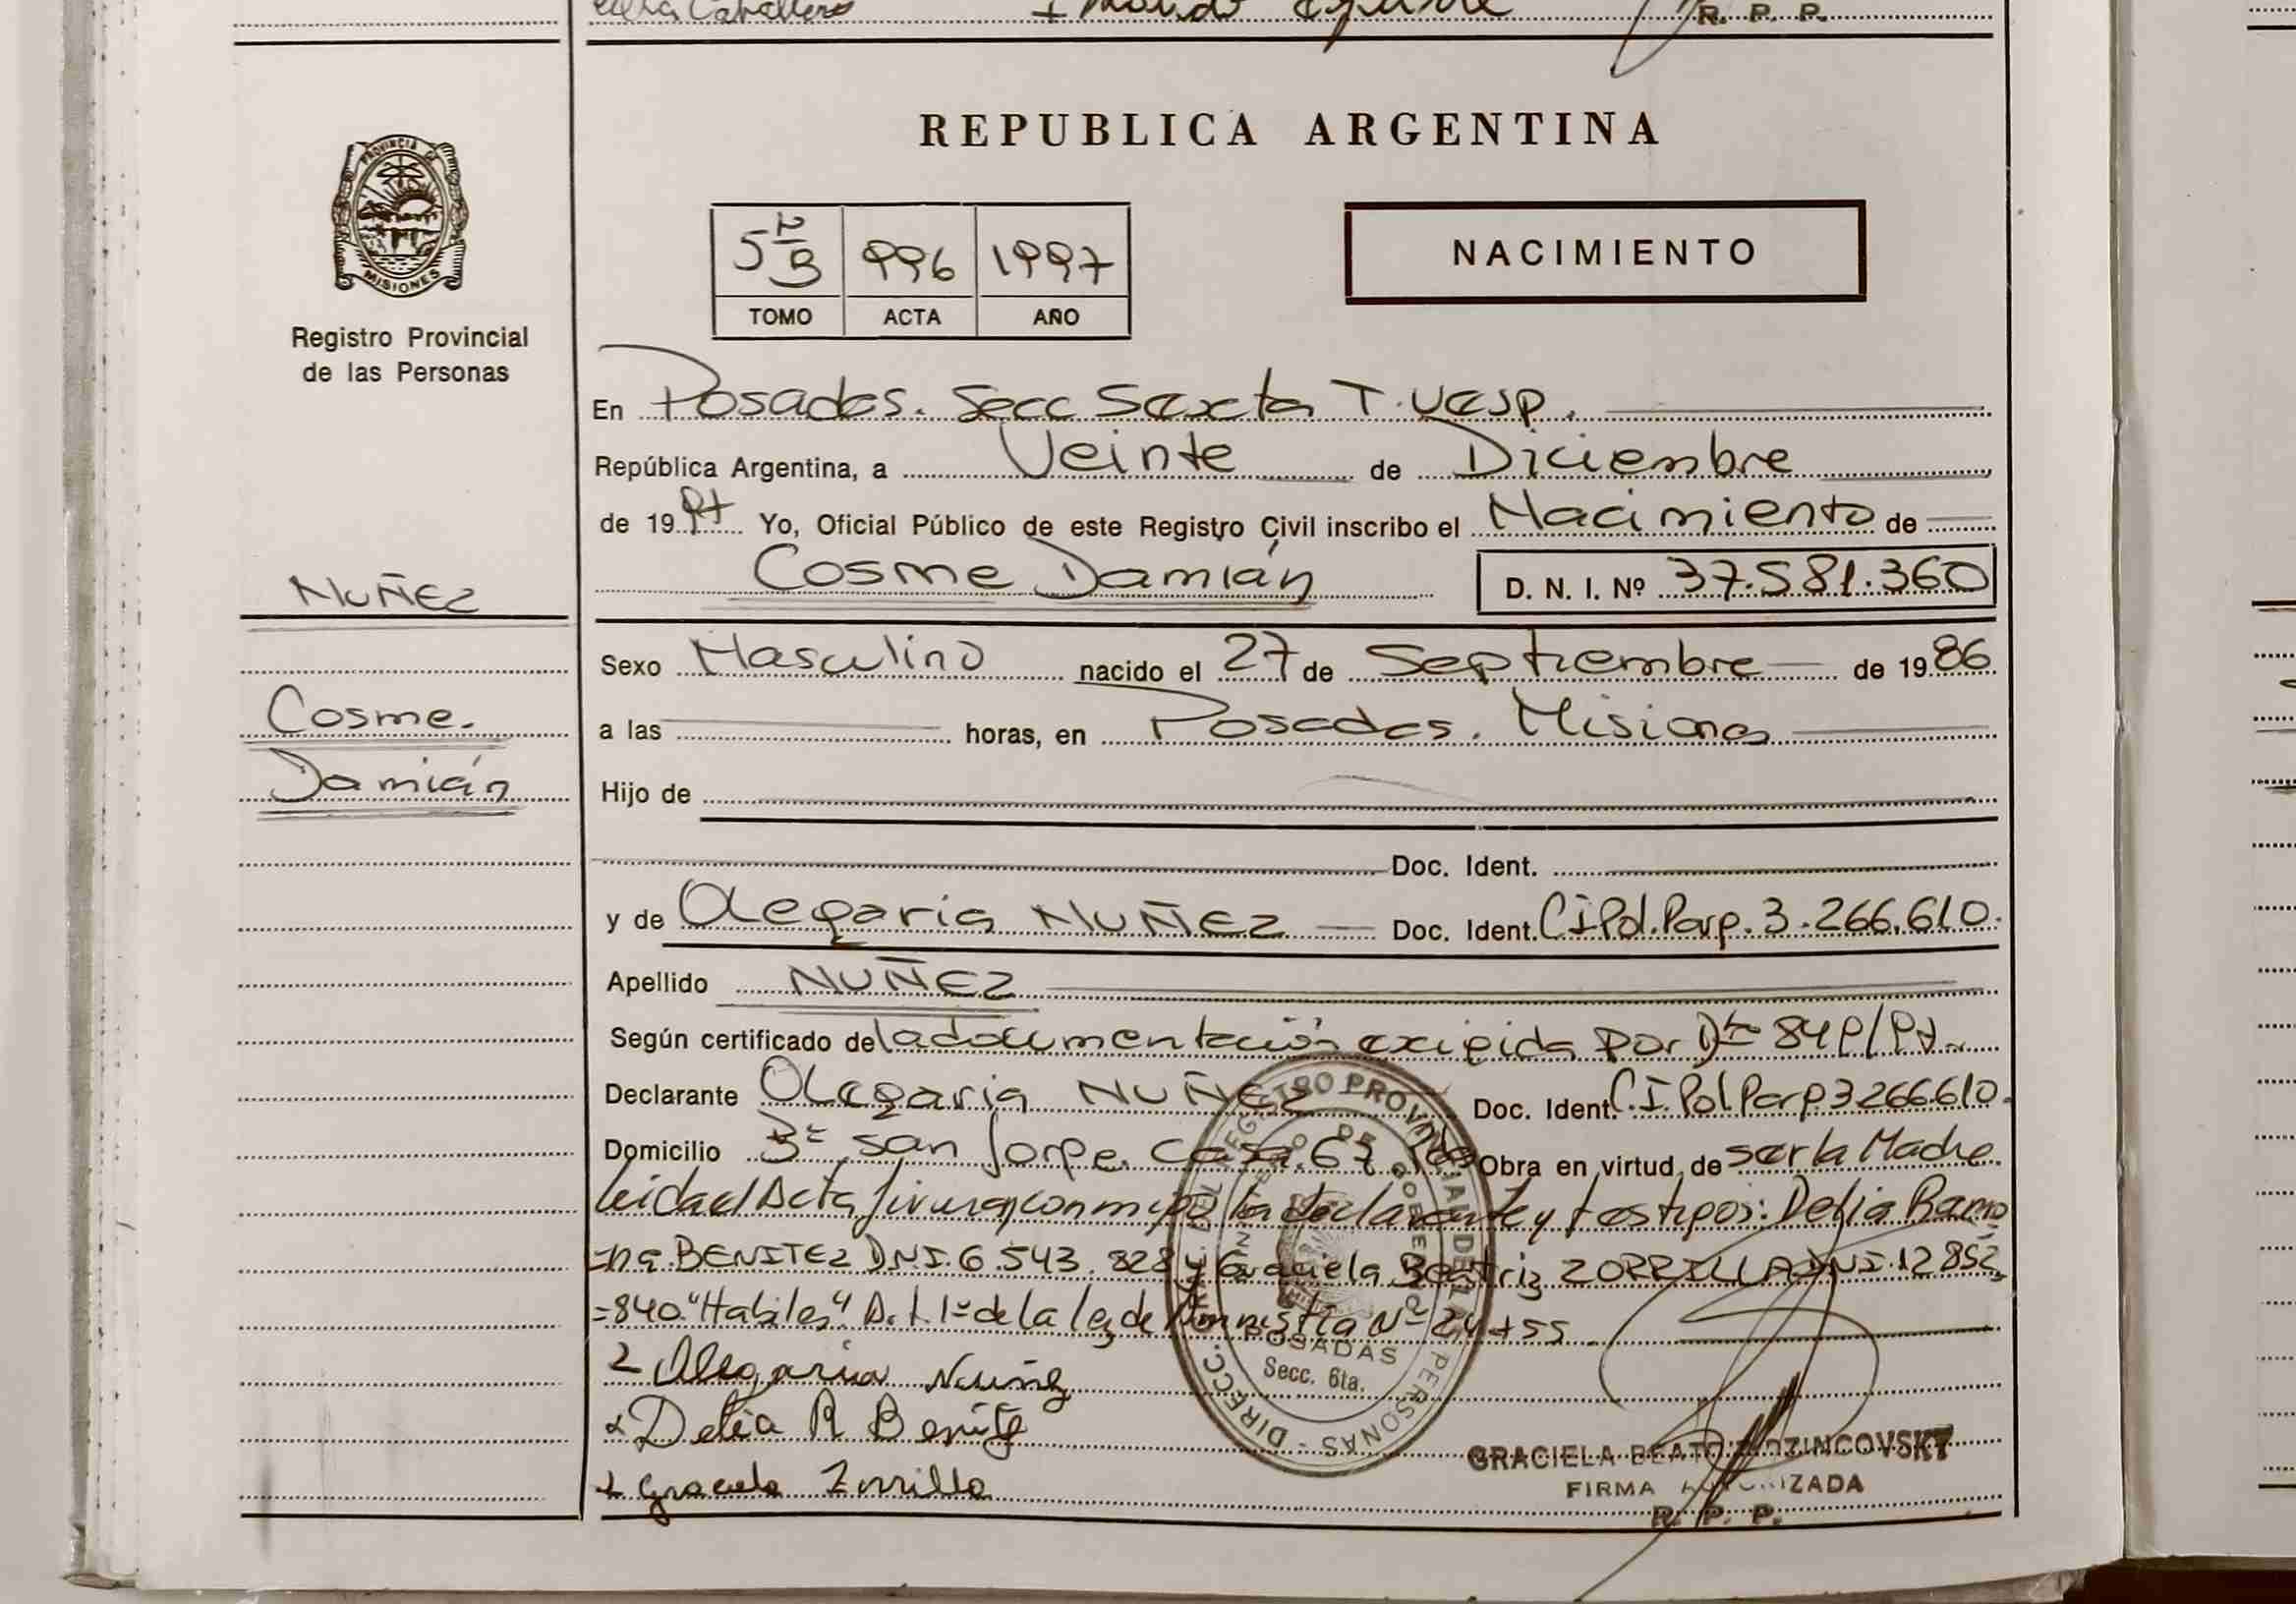 R. P. P.
REPUBLICA ARGENTINA
PROVINCIA DE
MISIONES
Registro Provincial
de las Personas
5 B 996 1997
TOMO ACTA AÑO
NACIMIENTO
En Posadas. Secc Sexta T. Vesp.
República Argentina, a Veinte de Diciembre
de 1997 Yo, Oficial Público de este Registro Civil inscribo el Nacimiento de
Cosme Damián D. N. I. Nº 37.581.360
NUÑEZ
Cosme.
Damián
Sexo Masculino nacido el 27 de Septiembre de 1986
a las horas, en Posadas. Misiones
Hijo de
Doc. Ident.
y de Olegaria NUÑEZ Doc. Ident. CIPol.Parg. 3.266.610.
Apellido NUÑEZ
Según certificado de la documentación exigida por 849/97
Declarante Olegaria NUÑEZ Doc. Ident. C.I Pol Parg 3266610.
Domicilio Bº San Jorge. Casa. 67. Pdas Obra en virtud de ser la Madre
leida el Acta firman conmigo la declarante y testigos: Delia Ramo
=na. BENITEZ DNI. 6.543.828 y Graciela Beatriz ZORRILLA DNI. 12852
=840. "Habiles". 1º de la ley de Amnistia Nº 24755
Olegaria Nuñez
Delia R Benitez
Graciela Zorrilla
DIRECC. GRAL. DEL REGISTRO PROVINCIAL DE LAS PERSONAS
MINISTERIO DE GOBIERNO
POSADAS
Secc. 6ta.
GRACIELA
FIRMA AUTORIZADA
R. P. P.